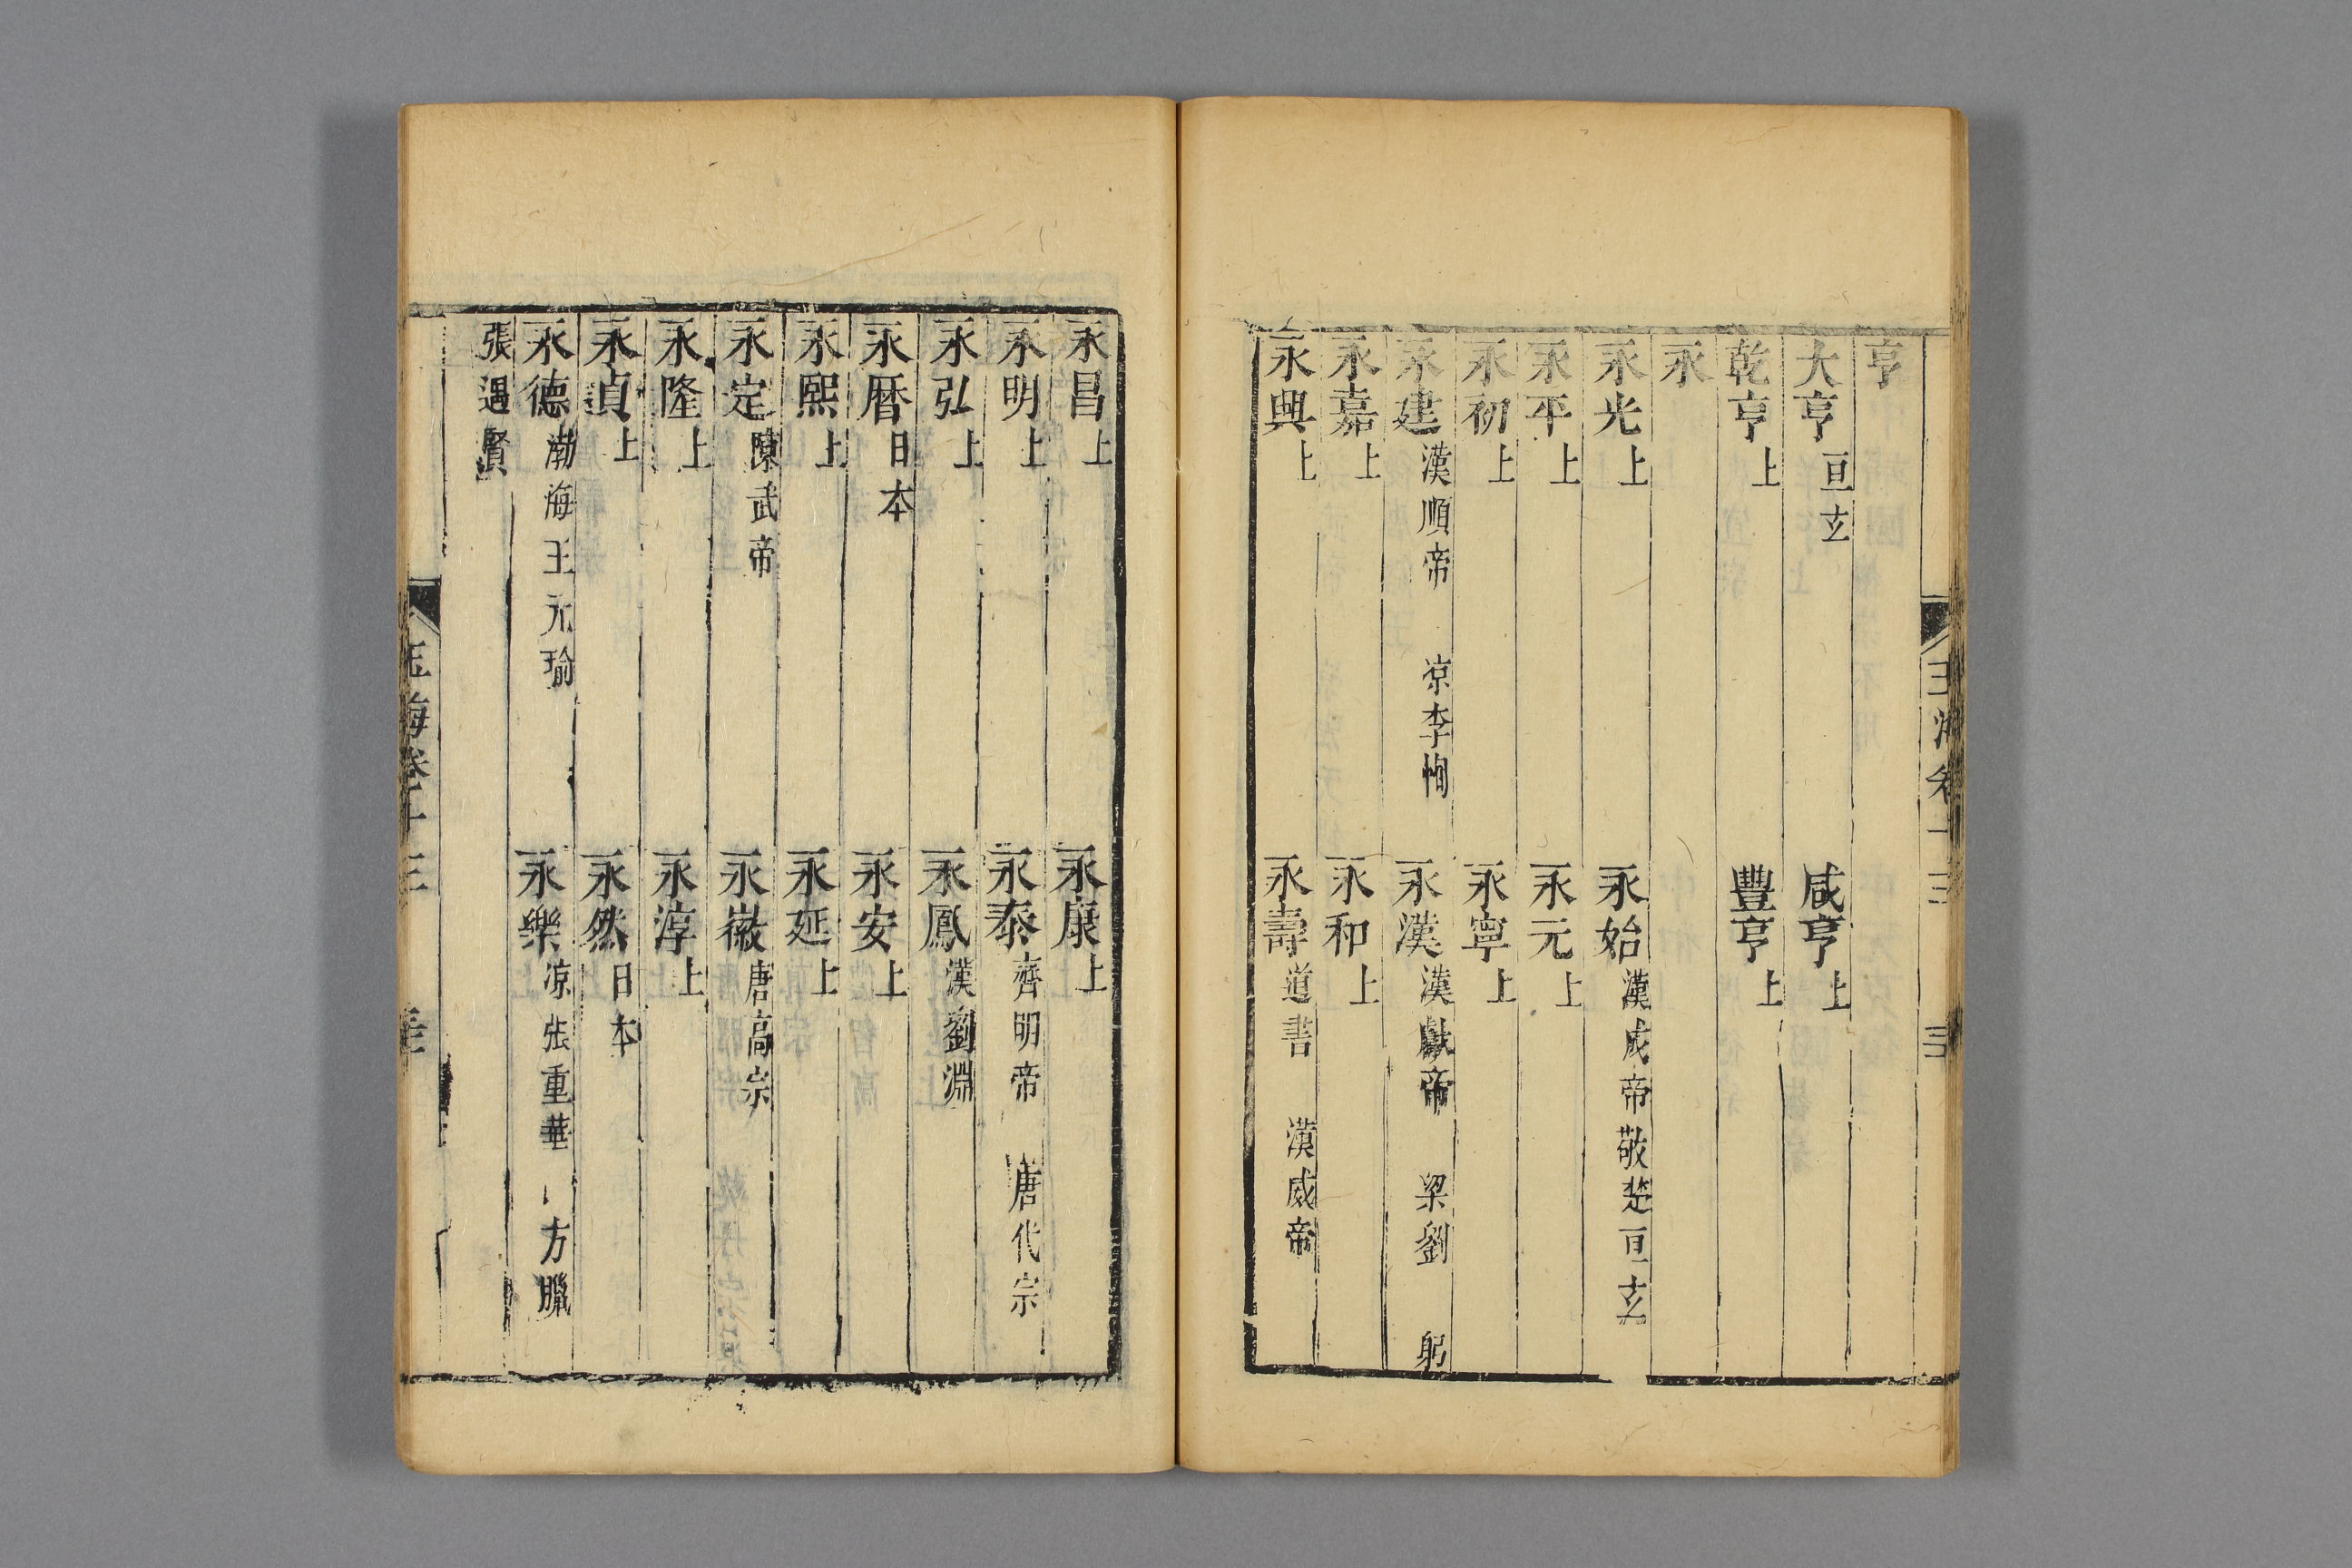 亨
大亨亘玄 咸亨上
乾亨上 豐亨上
永
永光上 永始漢成帝敬楚亘玄
永平上 永元上
永初上 永寧上
永建漢順帝 凉李恂 永漢漢獻帝 梁劉 躬
永嘉上 永和上
永興上 永壽道書 漢威帝
玉海卷十三
永昌上 永康上
永明上 永泰齊明帝 唐代宗
永弘上 永鳳漢劉淵
永曆日本 永安上
永熙上 永延上
永定陳武帝 永徽唐高宗
永隆上 永淳上
永貞上 永然日本
永德渤海王元瑜 永樂凉張重華 方臘
張遇賢
玉海卷十三